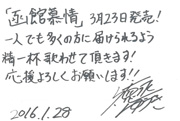 「函館慕情」3月23日発売!
一人でも多くの方に届けられるよう
精一杯歌わせて頂きます!
応援よろしくお願いします!!
2016.1.28